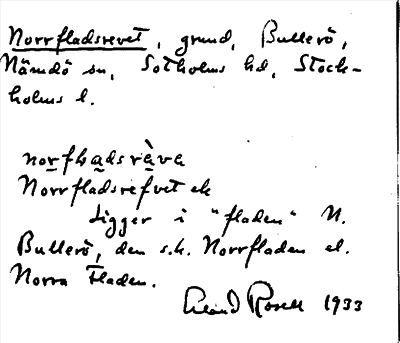 Norrfladsrevet, grund, Bullerö,
Nämdö sn, Sotholms hd, Stock-
holms l.
norfladsràva
Norrfladsrefvet ek
Ligger i "fladen" N.
Bullerö, den s.k. Norrfladen el.
Norra Fladen.
Erland Rosell 1933